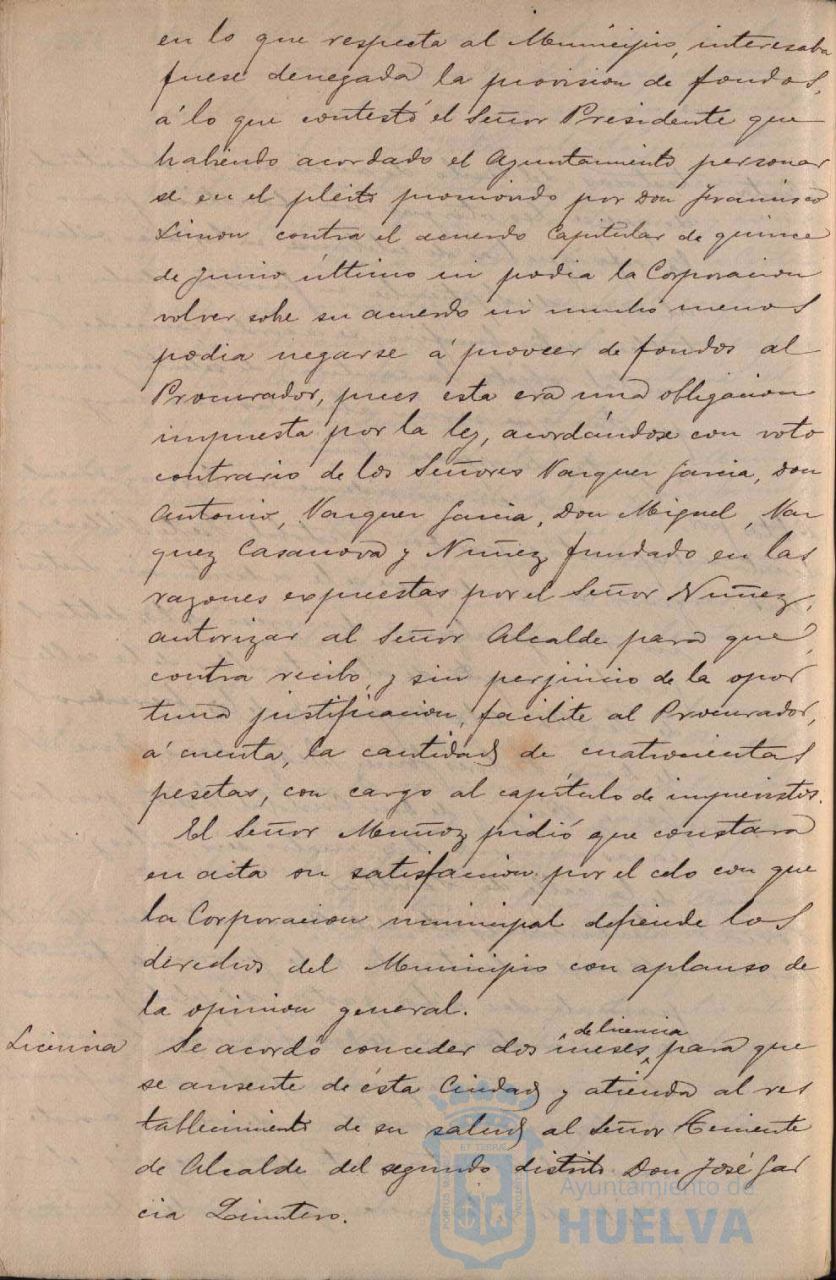 en lo que respecta al Municipio, interesaba
fuese denegada la provision de fondos,
á lo que contestó el Señor Presidente que
habiendo acordado el Ayuntamiento personar
se en el pleito promovido por Don Francisco
Limon contra el acuerdo Capitular de quince
de Junio último ni podia la Corporacion
volver sobre su acuerdo ni mucho menos
podia negarse á proveer de fondos al
Procurador, pues esta era una obligacion
impuesta por la ley, acordándose con voto
contrario de los Señores Vazquez Garcia, Don
Antonio, Vazquez Garcia, Don Miguel, Vaz
quez Casanova y Nuñez, fundado en las
razones expuestas por el Señor Nuñez,
autorizar al Señor Alcalde para que,
contra recibo, y sin perjuicio de la opor
tuna justificacion, facilite al Procurador,
á cuenta, la cantidad de cuatrocientas
pesetas, con cargo al capítulo de imprevistos.
El Señor Muñoz pidió que constara
en acta su satisfaccion por el celo con que
la Corporacion municipal defiende los
derechos del Municipio con aplauso de
la opinion general.
Licencia
Se acordó conceder dos meses de licencia para que
se ausente de ésta Ciudad y atienda al res
tablecimiento de su salud al Señor Teniente
de Alcalde del segundo distrito Don José Gar
cia
Ayuntamiento de
HUELVA